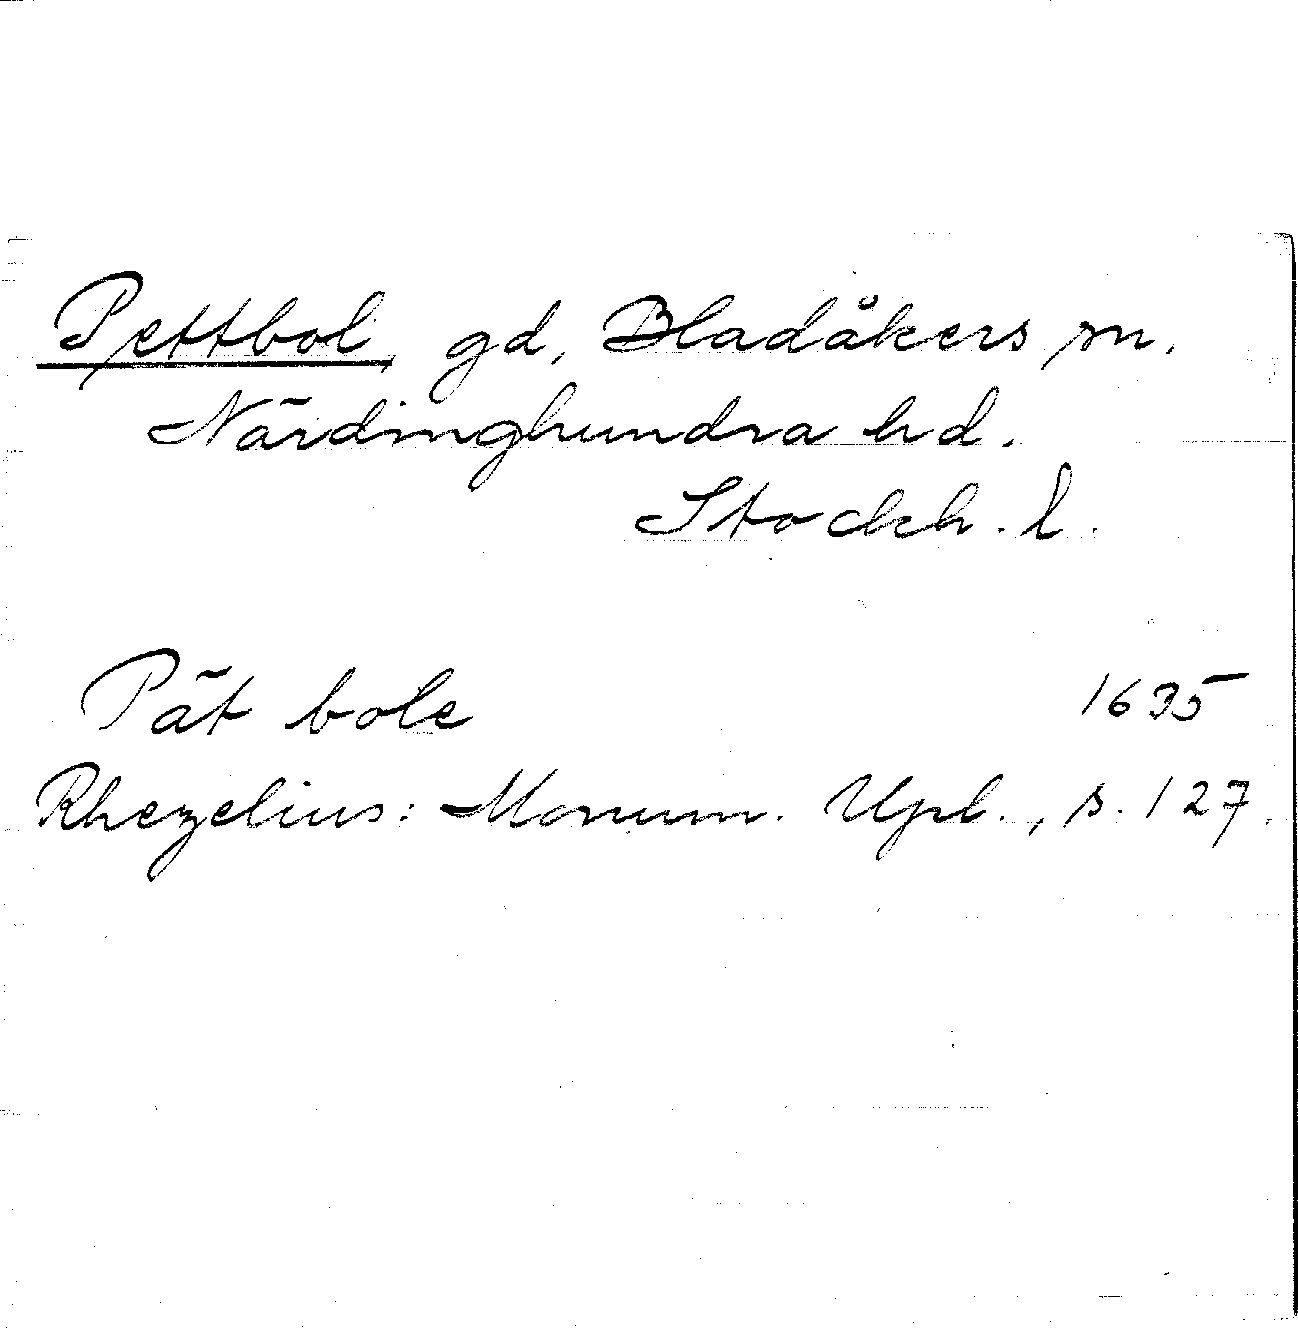 Pettbol, gd, Bladåkers sn.
Närdinghundra hd.
Stockh. l.
Pät bole 1635
Rhezelius: Monum. Upl., s. 127.